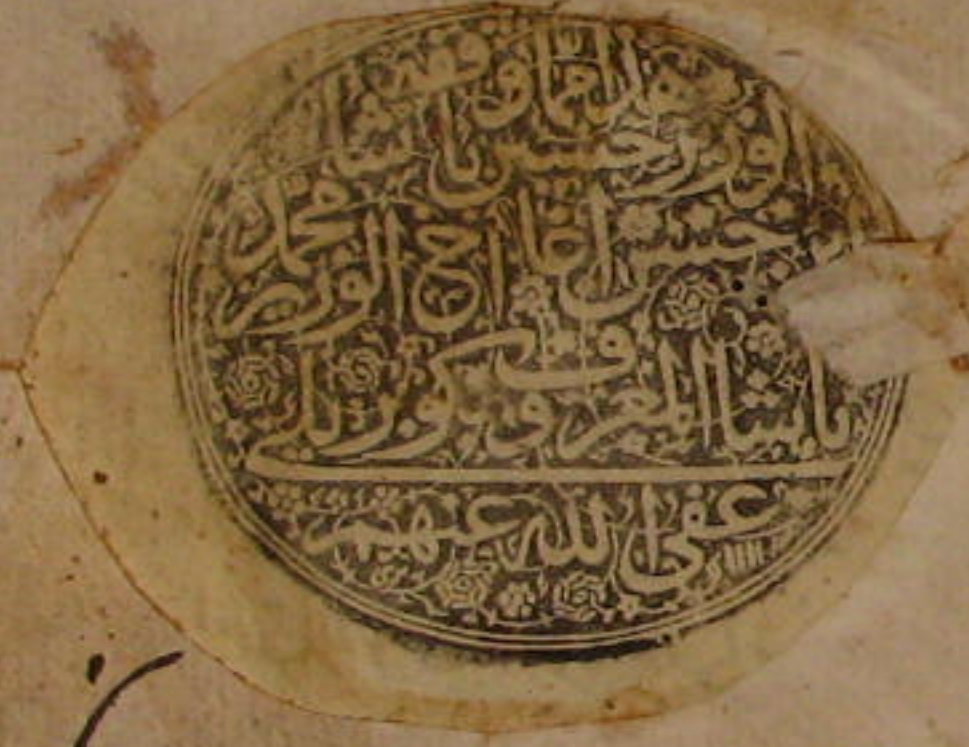 هذا مما وقفه
الوزير حسين باشا
حسن اغا اخ الوزير محمد
باشا المعروف بكوبريلي
عفى الله عنهم
١١١١